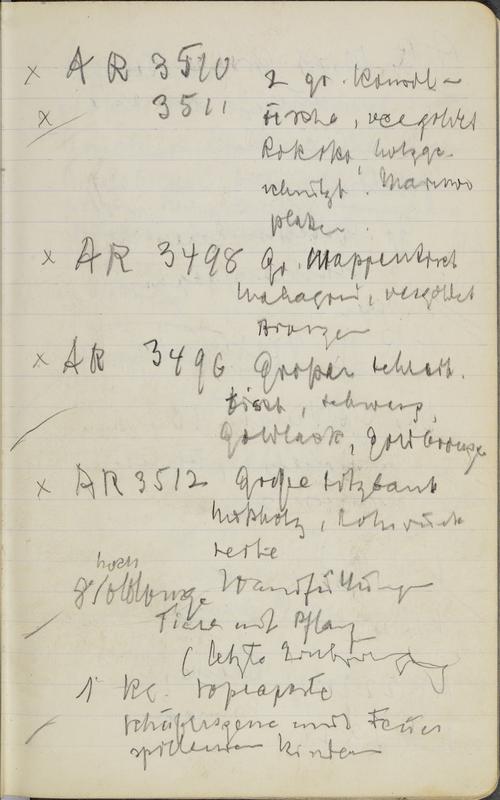 x AR 3510 2 gr. Konsol-
x 3511 tische, vergoldet
Rokoko holzge-
schnitzt. Marmor
platten.
x AR 3498 Gr. Mappentisch
Mahagoni, vergoldet
Bronzen
x AR 3496 Großer Schreib.
tisch, schwarz,
Goldlack, Goldbronze
x AR 3512 Große Sitzbank
Nußholz, Rohrrück
seite
hoch
Wandfüllung
Tiere und Pflanz
(letzte
1 kl.
Schäferszene und
spielenden Kindern